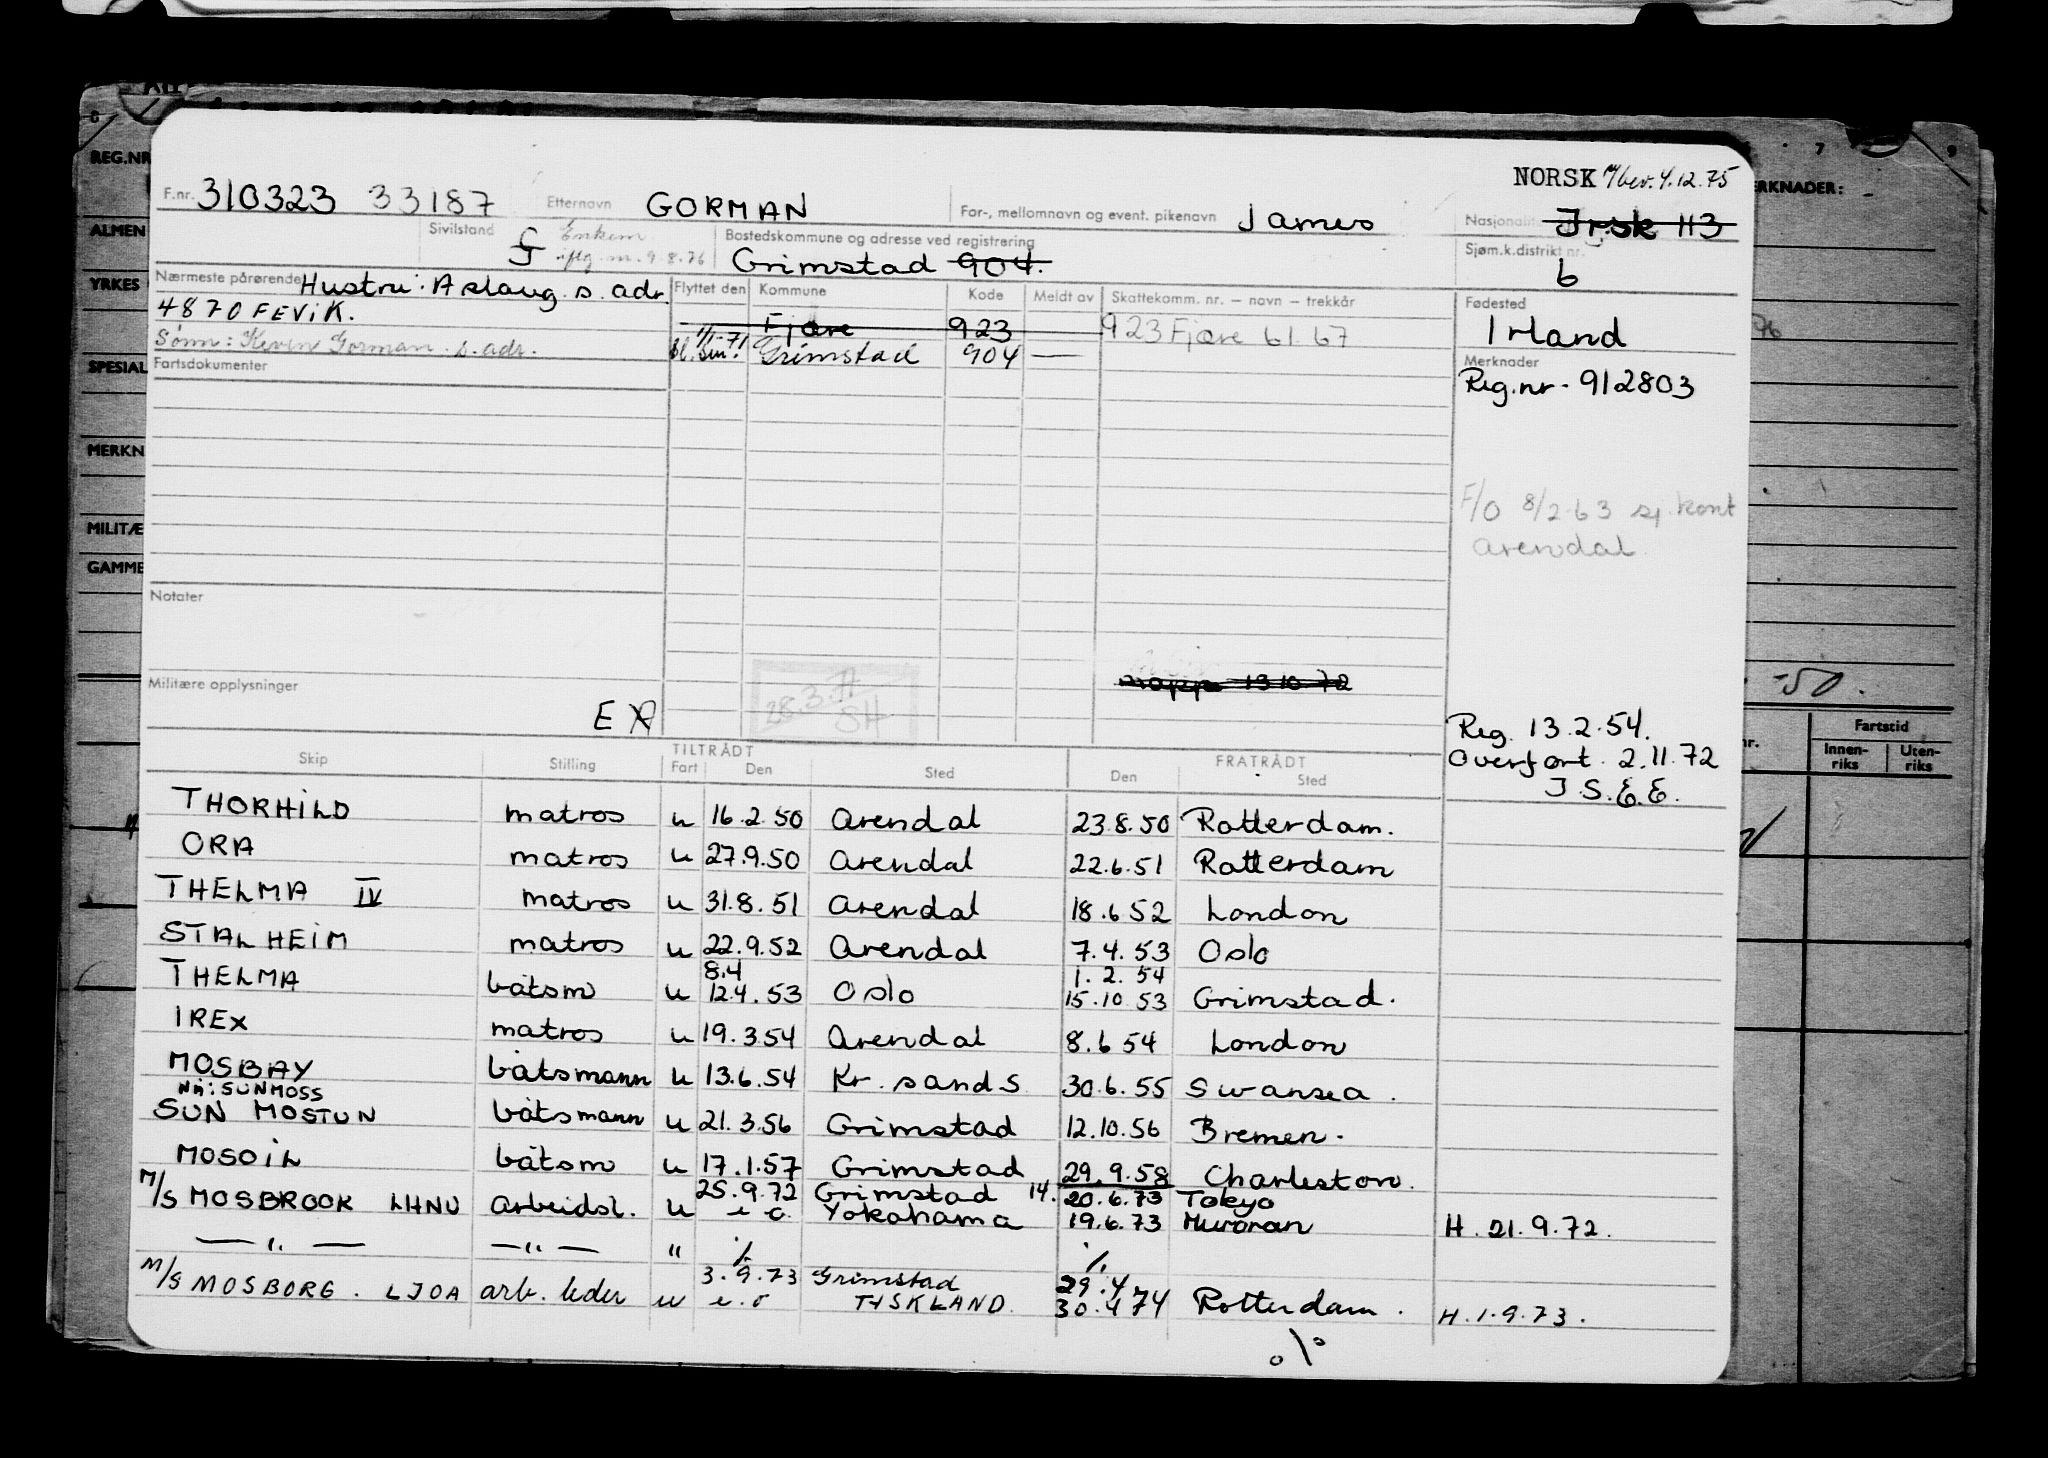 NORSK 4.12.75
F.nr. 310323 33187 Etternavn GORMAN For-, mellomnavn og event. pikenavn James Nasjonalitet Irsk 113
Sivilstand G Enkem. iflg. m. 9.8.76 Bostedskommune og adresse ved registrering Grimstad 904. Sjøm.k.distrikt nr. 6
Nærmeste pårørende Hustru: Aslaug s. adr.
4870 FEVIK.
Sønn: Kevin Gorman s. adr.
Flyttet den Kommune Kode Meldt av Skattekomm. nr. – navn – trekkår
Fjære 923 923 Fjære 61. 67
1/1-71 Grimstad 904 —
Fødested
Irland
Merknader
Reg.nr - 912803
F/O 8/2-63 sj. kont
Arendal
Fartsdokumenter
Notater
Militære opplysninger
28.3. SH
13 10 72
Reg. 13.2.54.
Overført. 2.11.72
J.S.E.E.
TILTRÅDT FRATRÅDT
Skip Stilling Fart Den Sted Den Sted
THORHILD matros u 16.2.50 Arendal 23.8.50 Rotterdam.
ORA matros u 27.9.50 Arendal 22.6.51 Rotterdam
THELMA IV matros u 31.8.51 Arendal 18.6 52 London
STALHEIM matros u 22.9.52 Arendal 7.4.53 Oslo
8.4 1.2.54
THELMA båtsm u 12.4.53 Oslo 15.10 53 Grimstad.
IREX matros u 19.3.54 Arendal 8.6 54 London
MOSBAY båtsmann u 13.6.54 Kr. sand S 30.6.55 Swansea.
Nå: SUNMOSS
SUN MOSTUN båtsmann u 21.3.56 Grimstad 12.10.56 Bremen.
MOSOIL båtsm u 17.1.57 Grimstad 29.9.58 Charleston.
25.9.72 Grimstad 14. 20.6.73 Tokyo
M/S MOSBROOK LHNU arbeidsl. u Yokohama 19.6.73 Muroran H. 21.9.72.
— " — — " — " ./. ./.
3.9.73 Grimstad 29.4.
M/S MOSBORG. LJOA arb. leder u TYSKLAND. 30.4 74 Rotterdam. H.1.9.73.
REG.NR
YRKES
SPESIAL
MERKN
MILITÆ
GAMME
ERKNADER:
-50.
Fartstid
Innen-riks Uten-riks